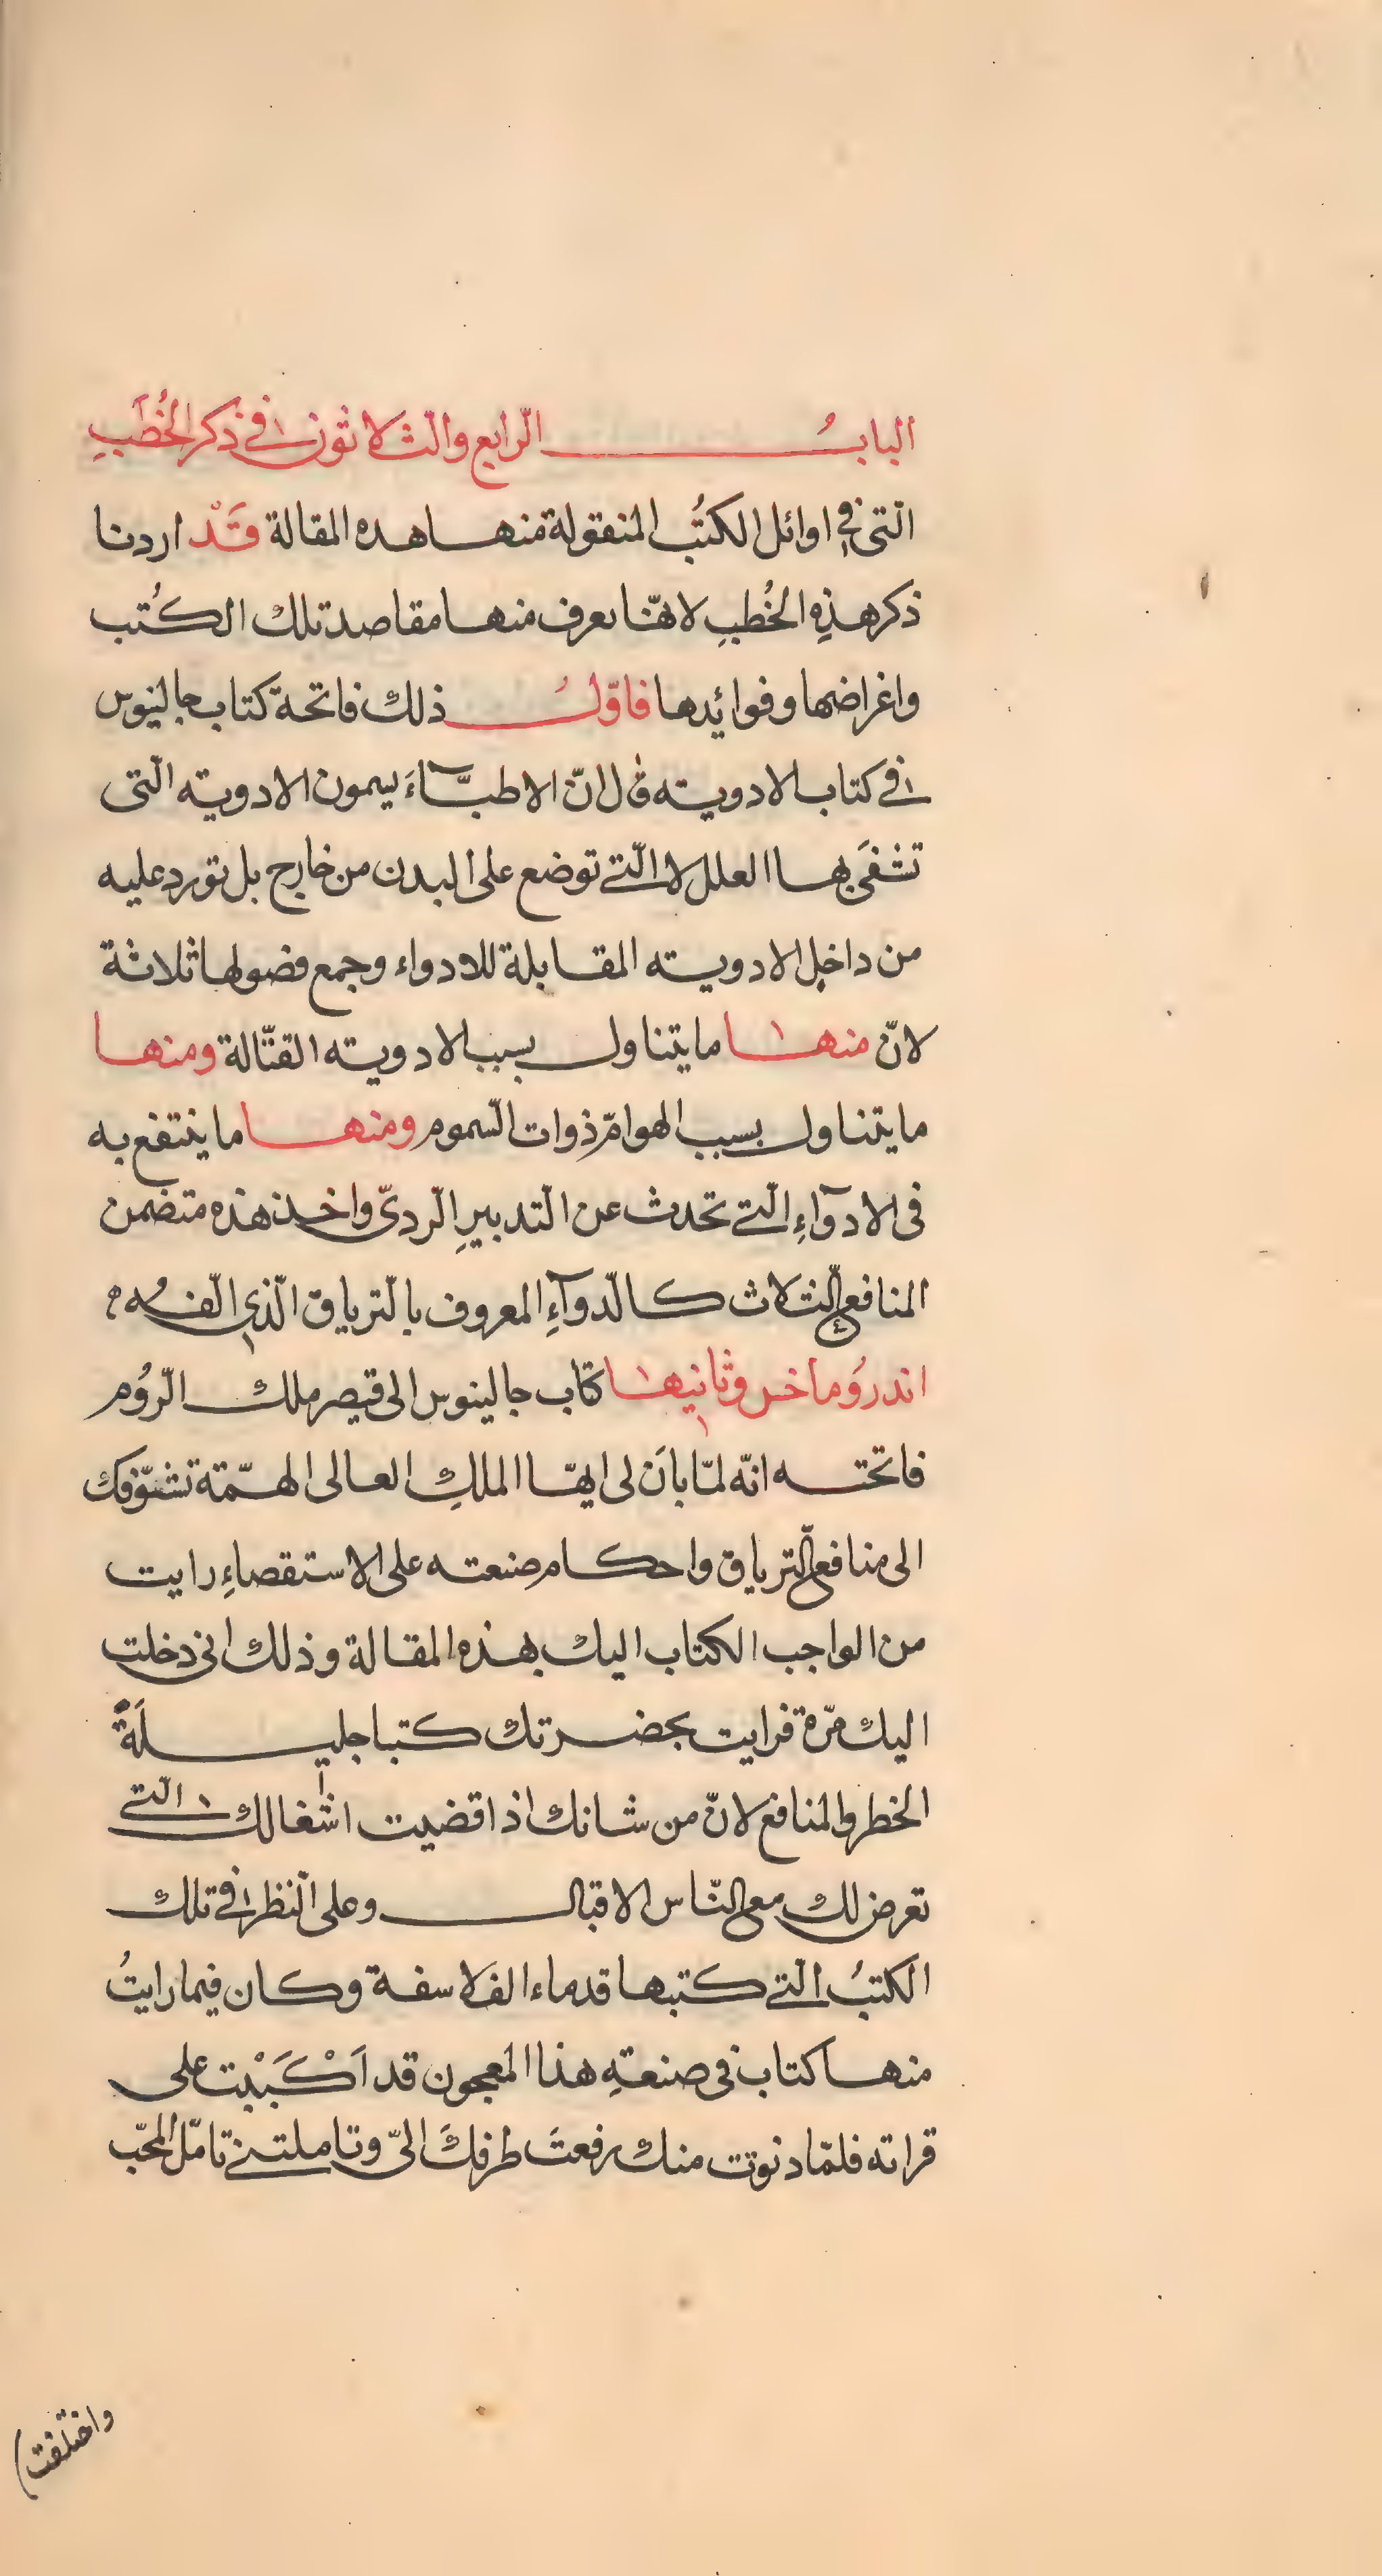 البابُ الرّابع والثّلاثون في ذكر الخُطَبِ
الّتى في اوائل الكتُب المنقولة منها هده المقالة قَدْ اردنا
ذكر هذِهِ الخُطبِ لانّها يعرف منها مقاصد تلك الكُتب
واغراضها وفوائدها فاوّلُ ذلك فاتحة كتاب جالينوس
في كتاب الادويته قال انّ الاطبّآءَ يسمون الادويته الّتى
تشفَى بها العلل لا الّتي توضع على البدن من خارج بل تورد عليه
من داخلٍ الادويته المقابلة للادواء وجمع فضولها ثلاثة
لانّ منها ما يتناول بسبب الادويته القتّالة ومنها
ما يتناول بسبب الهوامّ ذوات السّموم ومنها ما ينتفع به
فى الادوآءِ الّتي تحدث عن التدبيرِ الرّدىّ واخذ هذه متضمن
المنافع الثّلاث كالّدوآءِ المعروف بالتّرياق الّذى الّفهُ
اندرُوماخس وثانيها كتاب جالينوس الى قيصر ملك الرّوُم
فاتحته انّه لمّا بانَ لى ايّها الملكِ العالى الهمّة تشوّفك
الى منافع التّرياق واحكام صنعته على الاستقصاءِ رايت
من الواجب الكتاب اليك بهذه المقالة وذلك انى دخلت
اليك مرّة فرايت بحضرتك كتبا جليلَةً
الخطر والمنافع لانّ من شانك اذا قضيت اشغالك الّتي
تعرض لك مع النّاس الاقبال وعلى النّظر في تلك
الكتبُ الّتي كتبها قدماء الفلاسفة وكان فيما رايتُ
منها كتاب فى صنعةِ هذا المعجون قد اَكْبَبْت على
قراته فلمّا دنوت منك رفعتَ طرفكَ الىّ وتاملتنى تامّل المحبّ
واختلفت